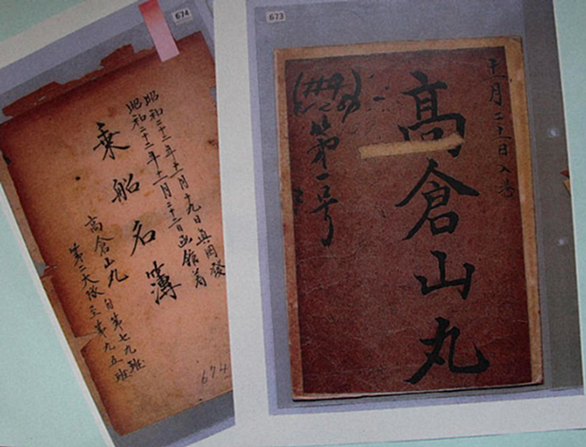 674
昭和二十二年十一月十九日真岡發
昭和二十二年十一月二十二日函館着
乗船名簿
高倉山丸 自第七九班
第二大隊至第九五班
674
673
十一月二十二日入港
高倉山丸
第一号